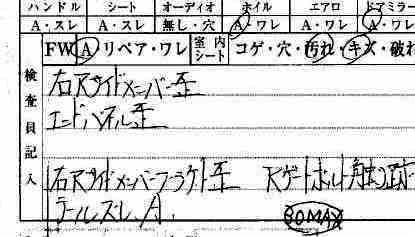 ハンドル シート オーディオ ホイル エアロ ドアミラー
A・スレ A・スレ 無し・穴 A・ワレ A・ワレ A・ワレ
FW A リペア・ワレ 室内シート コゲ・穴・汚れ・キズ・破れ
検査員記入
右Rサイドメンバー歪
エンドパネル歪
右Rサイドメンバーブラケット歪 Rゲートボルト触り跡
テールスレ、A.
BOMAX